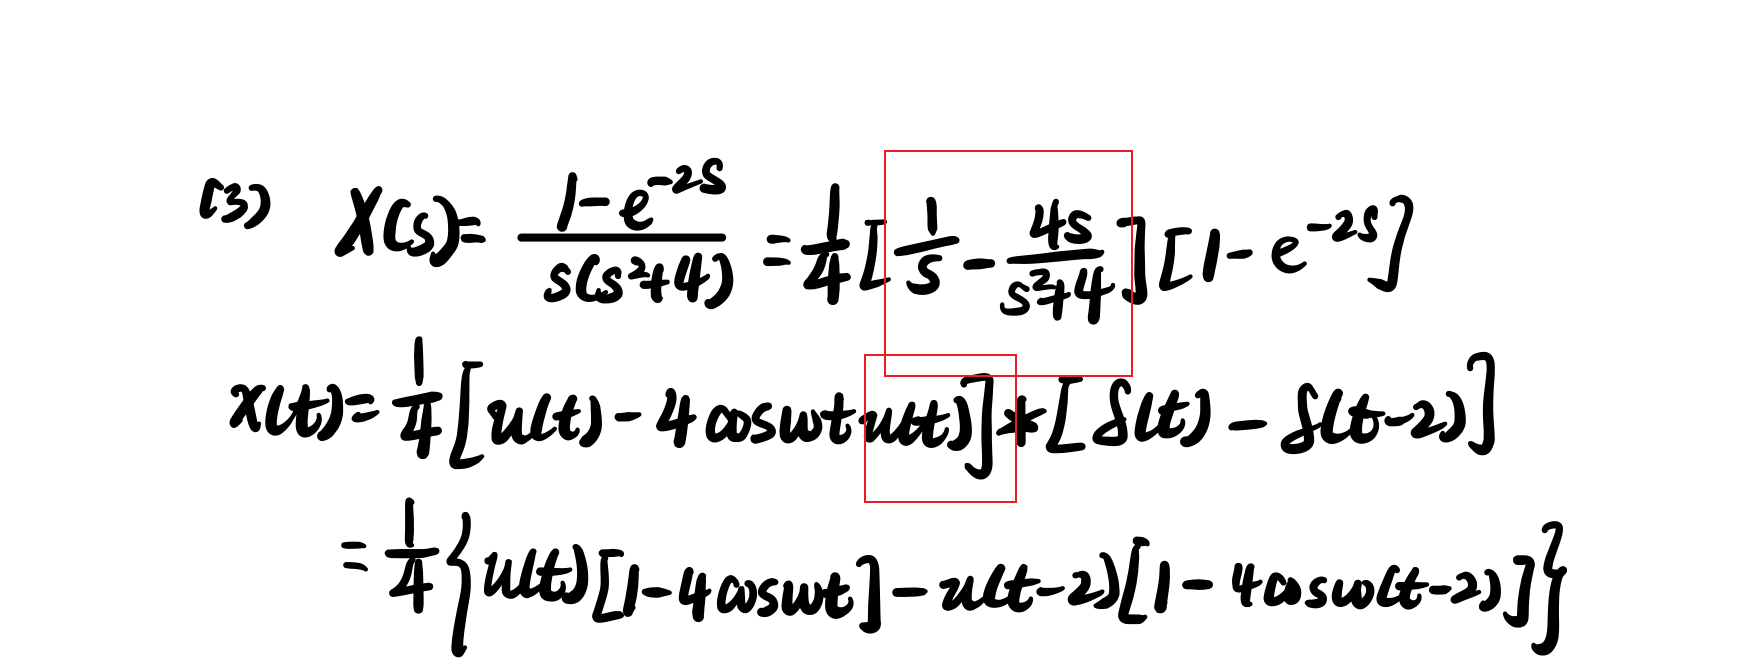 (3) X(s)= \frac{1-e^{-2s}}{s(s^2+4)} = \frac{1}{4} [\frac{1}{s} - \frac{4s}{s^2+4}] [1-e^{-2s}]
x(t)= \frac{1}{4} [u(t) - 4 cosωt u(t)] * [δ(t) - δ(t-2)]
= \frac{1}{4} {u(t)[1-4cosωt] - u(t-2)[1-4cosω(t-2)]}